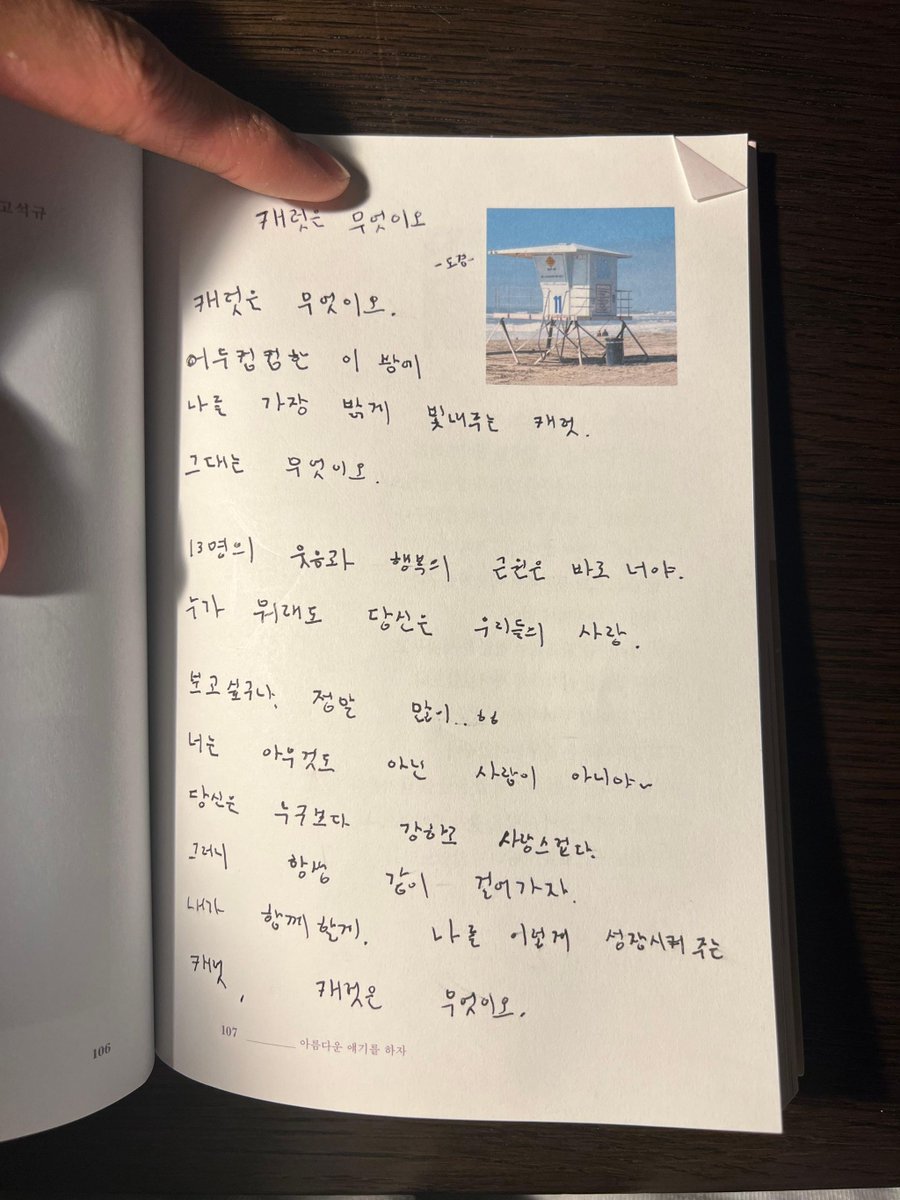 고석규
106
캐럿은 무엇이오
-도겸-
11
캐럿은 무엇이오.
어두컴컴한 이 밤에
나를 가장 밝게 빛내주는 캐럿.
그대는 무엇이오.
13명의 웃음과 행복의 근원은 바로 너야.
누가 뭐래도 당신은 우리들의 사랑.
보고싶구나. 정말 많이..ㅎㅎ
너는 아무것도 아닌 사람이 아니야~
당신은 누구보다 강하고 사랑스럽다.
그러니 항상 같이 걸어가자.
내가 함께할게. 나를 이렇게 성장시켜 주는
캐럿, 캐럿은 무엇이오.
107 아름다운 얘기를 하자